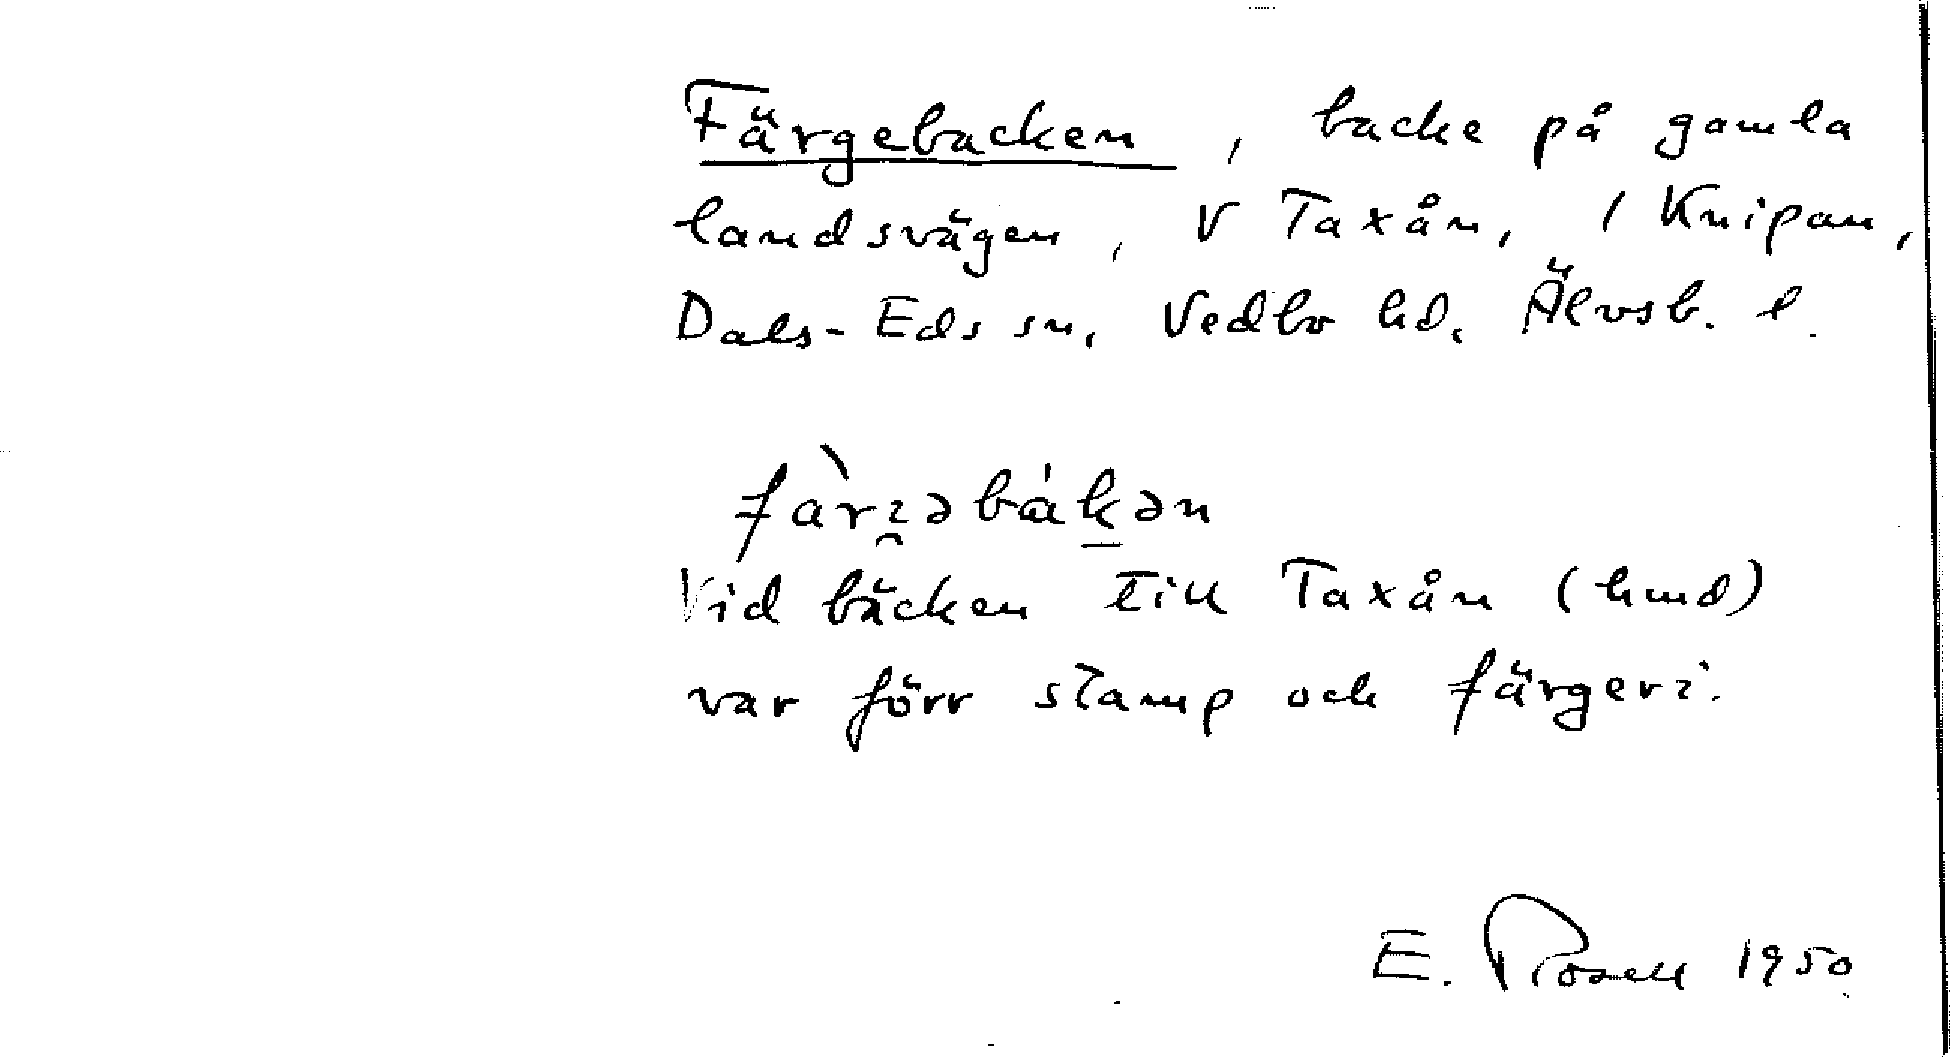 Färgebacken, backe på gamla
landsvägen, V Taxån, / Knipan,
Dals-Eds sn, Vedbo hd. Älvsb. l.
Vid bäcken till Taxån (hmd)
var förr stamp och färgeri.
E. Rosell 1950